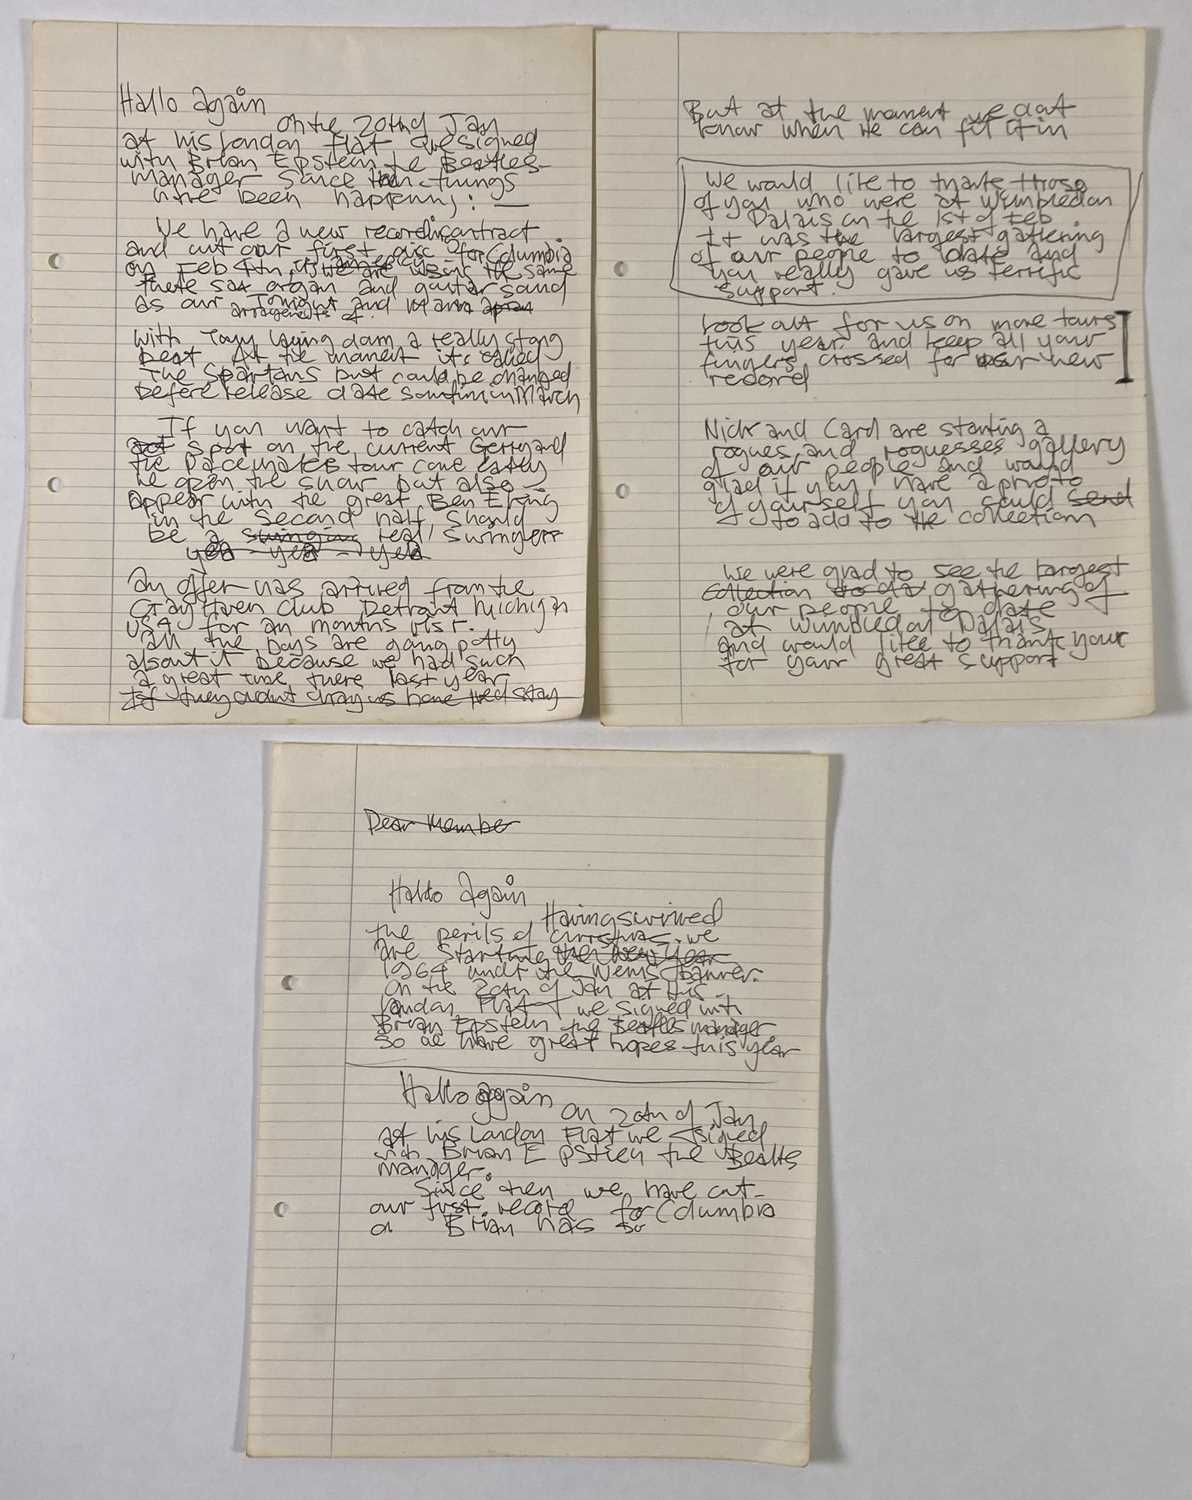 Hallo Again
on the 20th of Jan
at his London flat we signed
with Brian Epstein the Beatles
manager since then things
have been happening: —
We have a new record contract
and cut our first disc for Columbia
on Feb 4th, we are using the same
sax organ and guitar sound
as our Tonight and Maria
arragements of
With Tony laying down a really strong
beat. At the moment it's called
The Spartans but could be changed
before release date sometime in March
If you want to catch our
act spot on the current Gerry and
the Pacemakers tour come early
we open the show but also
appear with the great Ben E King
in the second half, should
be a swinging real swinger
yea - yea - yea
An offer has arrived from the
Gray Haven Club Detroit Michigan
USA for an months visit.
all the boys are going potty
about it because we had such
a great time there last year
If they didnt drag us home wed stay
But at the moment we dont
know when we can fit it in
We would like to thank those
of you who were at Wimbledon
Palais on the 1st of Feb.
It was the largest gathering
of our people to date and
you really gave us terrific
support.
Look out for us on more tours
this year and keep all your
fingers crossed for our new
record
Nick and Carol are starting a
rogues and roguesses gallery
of our people and would
glad if you have a photo
of yourself you could send
to add to the collection
We were glad to see the largest
collection to da gathering of
our people to date
at Wimbledon Palais
and would like to thank your
for your great support
Dear Member
Hallo Again
Having survived
the perils of christmas we
are starting the new year
1964 under the Nems banner.
On the 20th of Jan at his
London Flat we signed with
Brian Epstein the Beatles manager
so we have great hopes this year
Hallo again
On 20th of Jan
at his London Flat we signed
with Brian Epstien the Beatles
manager.
Since then we have cut
our first record for Columbia
a Brian has so